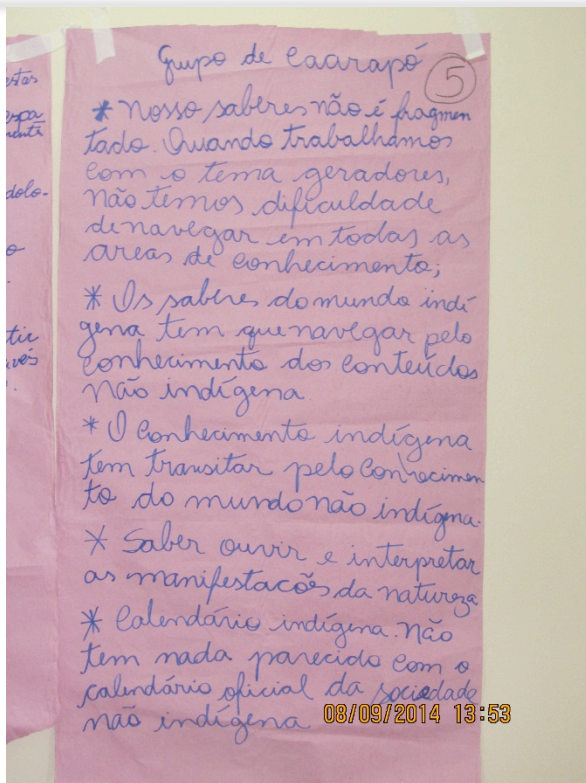 estas
espa
mente
dolo-
o
tir
avés
Grupo de Caarapó
5
* Nosso saberes não é fragmen
tado. Quando trabalhamos
com o tema geradores,
não temos dificuldade
de navegar em todas as
areas de conhecimento;
* Os saberes do mundo indí
gena tem que navegar pelo
conhecimento dos conteúdos
não indígena.
* O conhecimento indígena
tem transitar pelo conhecimen
to do mundo não indígena.
* Saber ouvir e interpretar
as manifestacões da natureza
* Calendário indígena. Não
tem nada parecido com o
calendário oficial da sociedade
não indígena
08/09/2014 13:53